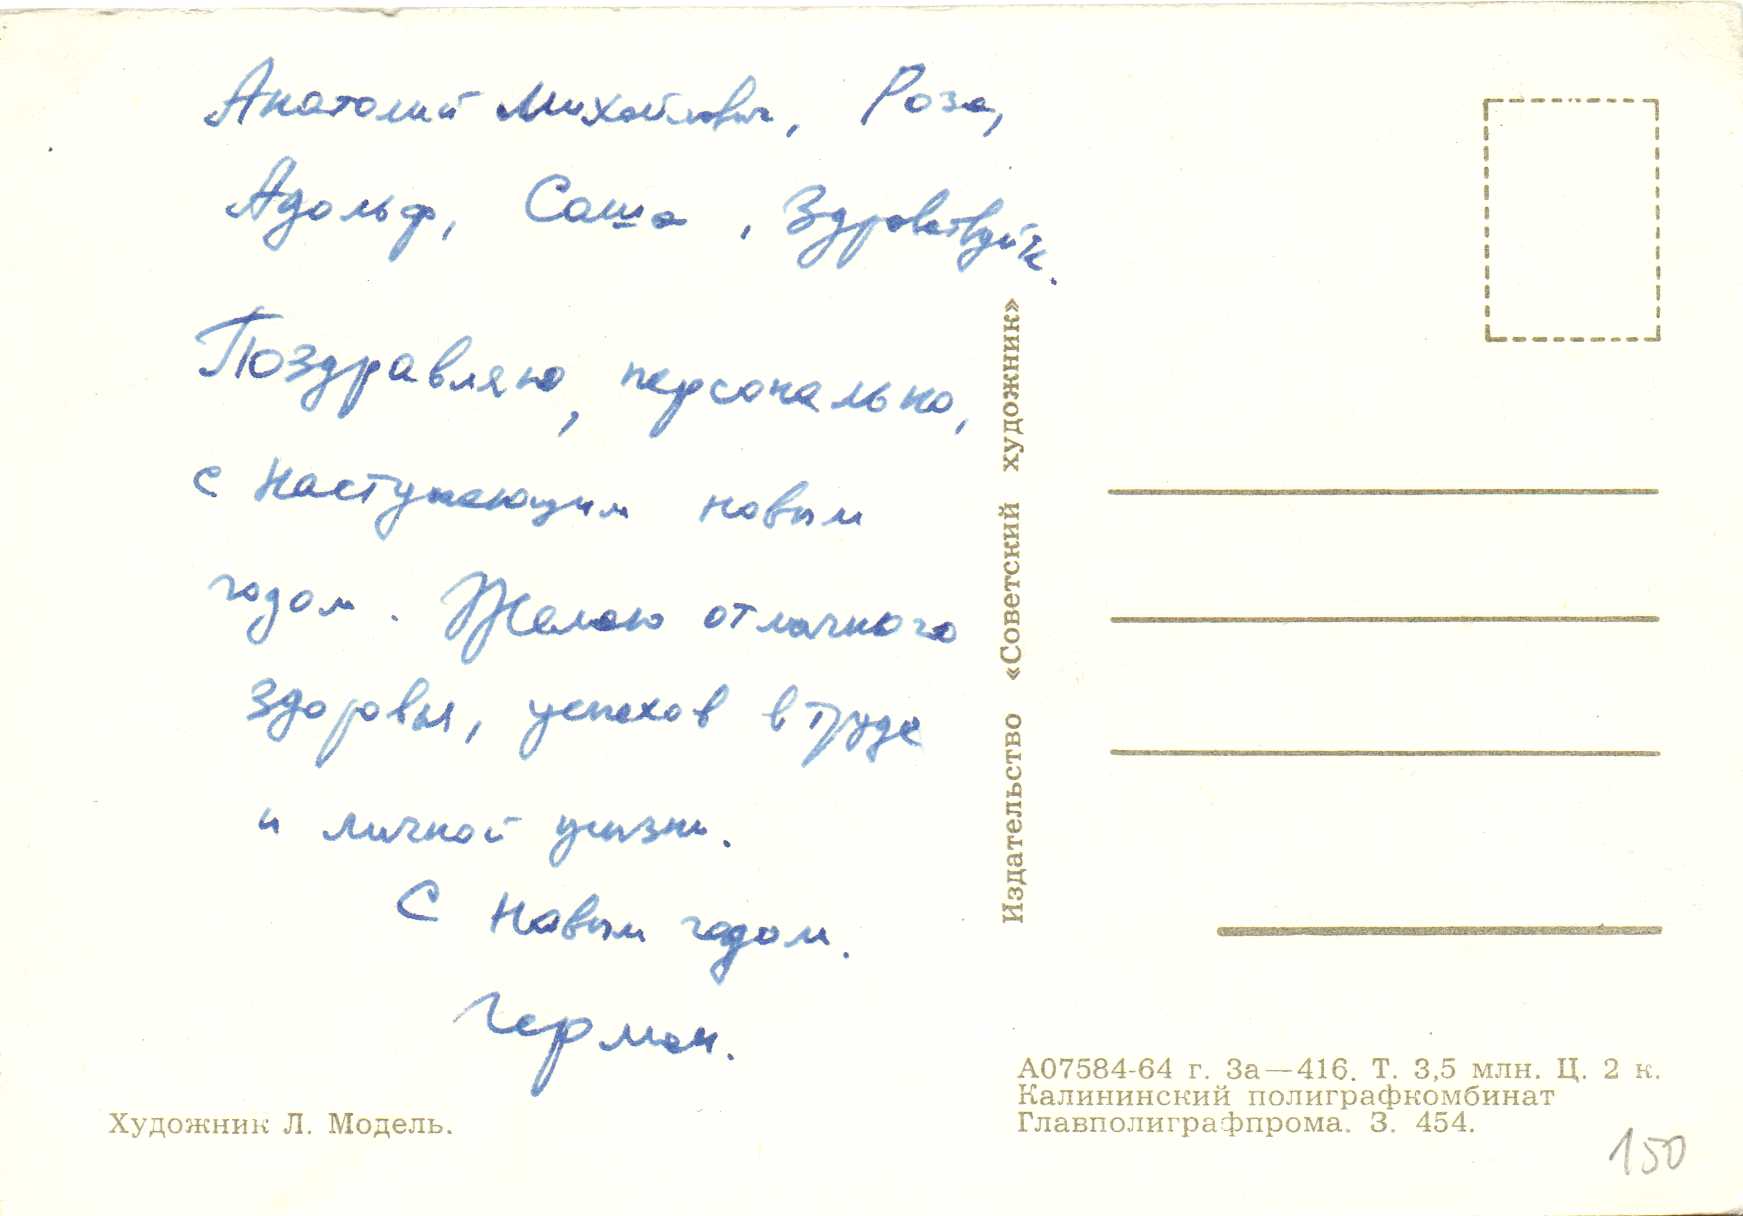 Анатолий Михайлович, Роза,
Адольф, Саша, Здравствуйте.
Поздравляю, персонально,
с наступающим новым
годом. Желаю отличного
здоровья, успехов в труде
и личной жизни.
С Новым годом.
Герман.
Художник Л. Модель.
Издательство «Советский художник»
А07584-64 г. За—416. Т. 3,5 млн. Ц. 2 к.
Калининский полиграфкомбинат
Главполиграфпрома. З. 454.
150